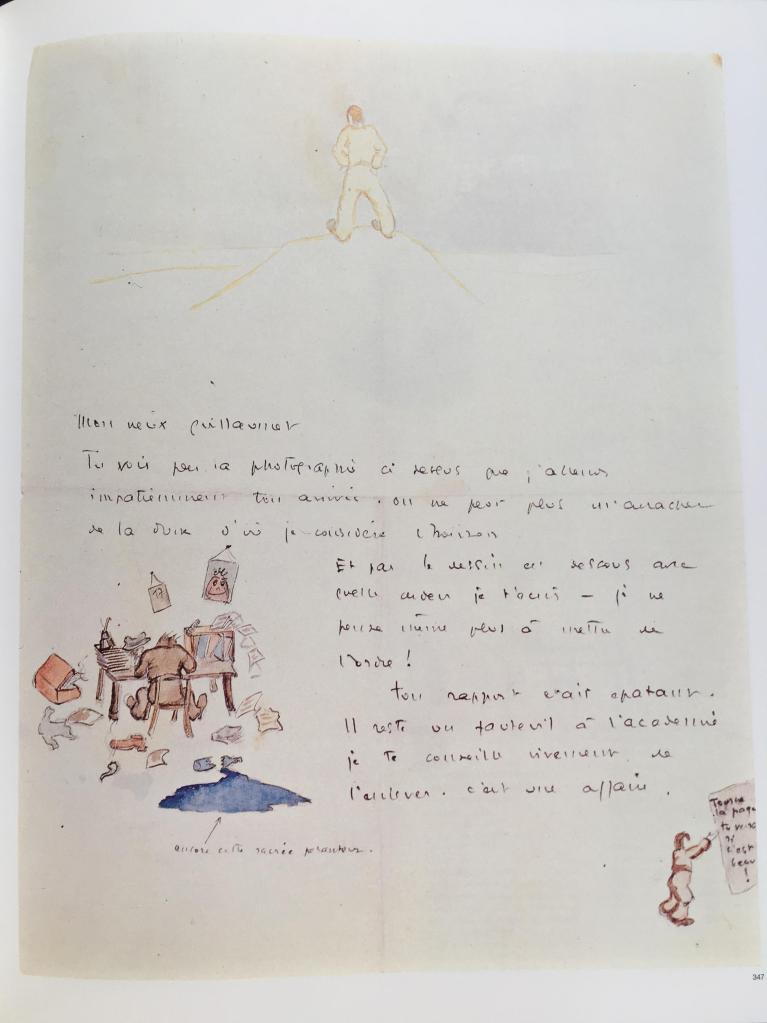 Mon vieux Guillaumet
Tu vois par la photographie ci dessus que j'attends
impatiemment ton arrivée. On ne peut plus m'arracher
de la dune d'où je considère l'horizon
17
Et par le dessin ci dessous avec
quelle ardeur je t'écris — je ne
pense même plus à mettre de
l'ordre!
Ton rapport était épatant.
Il reste un fauteuil à l'académie
je te conseille vivement de
l'enlever. c'est une affaire.
encore cette sacrée pesanteur.
Tourne
la page
tu verras
si
c'est
beau
!
347